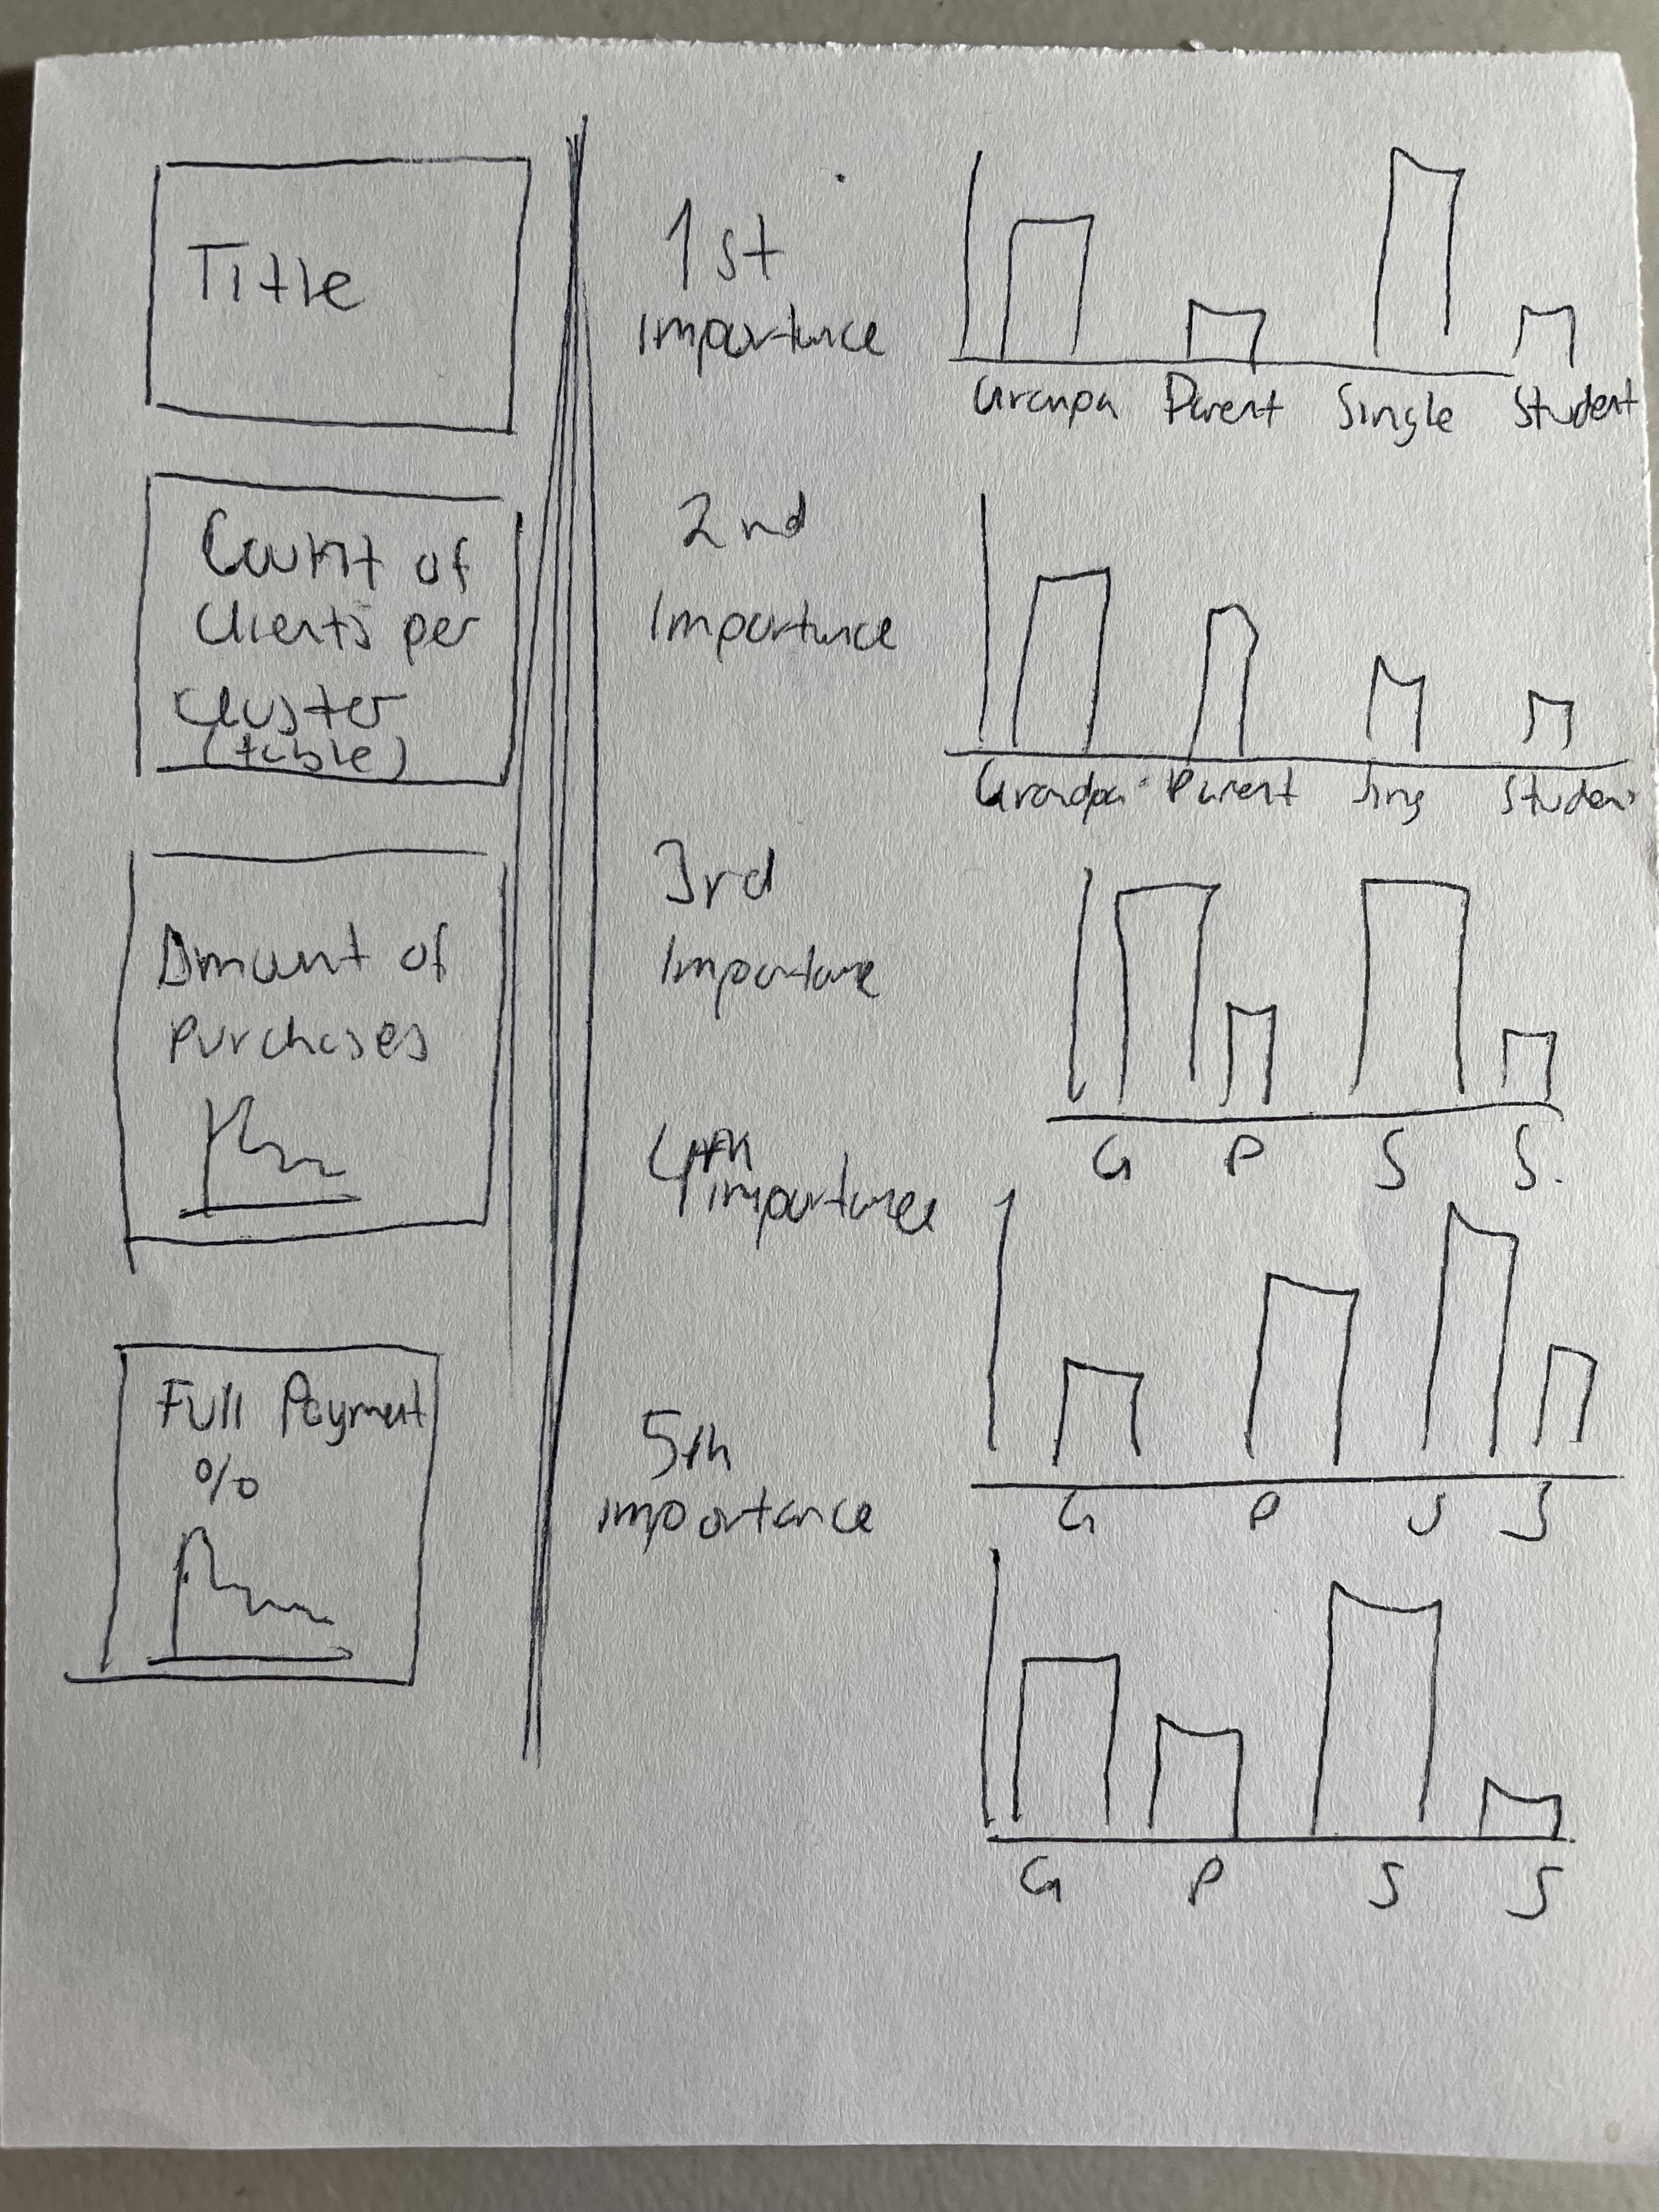 Title
Count of
clients per
cluster
(table)
Amount of
purchases
Full Payment
%
1st
importance
Grampa Parent Single Student
2nd
Importance
Grandpa Parent Sing Studen
3rd
Importance
G P S S.
4th
importance
G P S S
5th
importance
G P S S